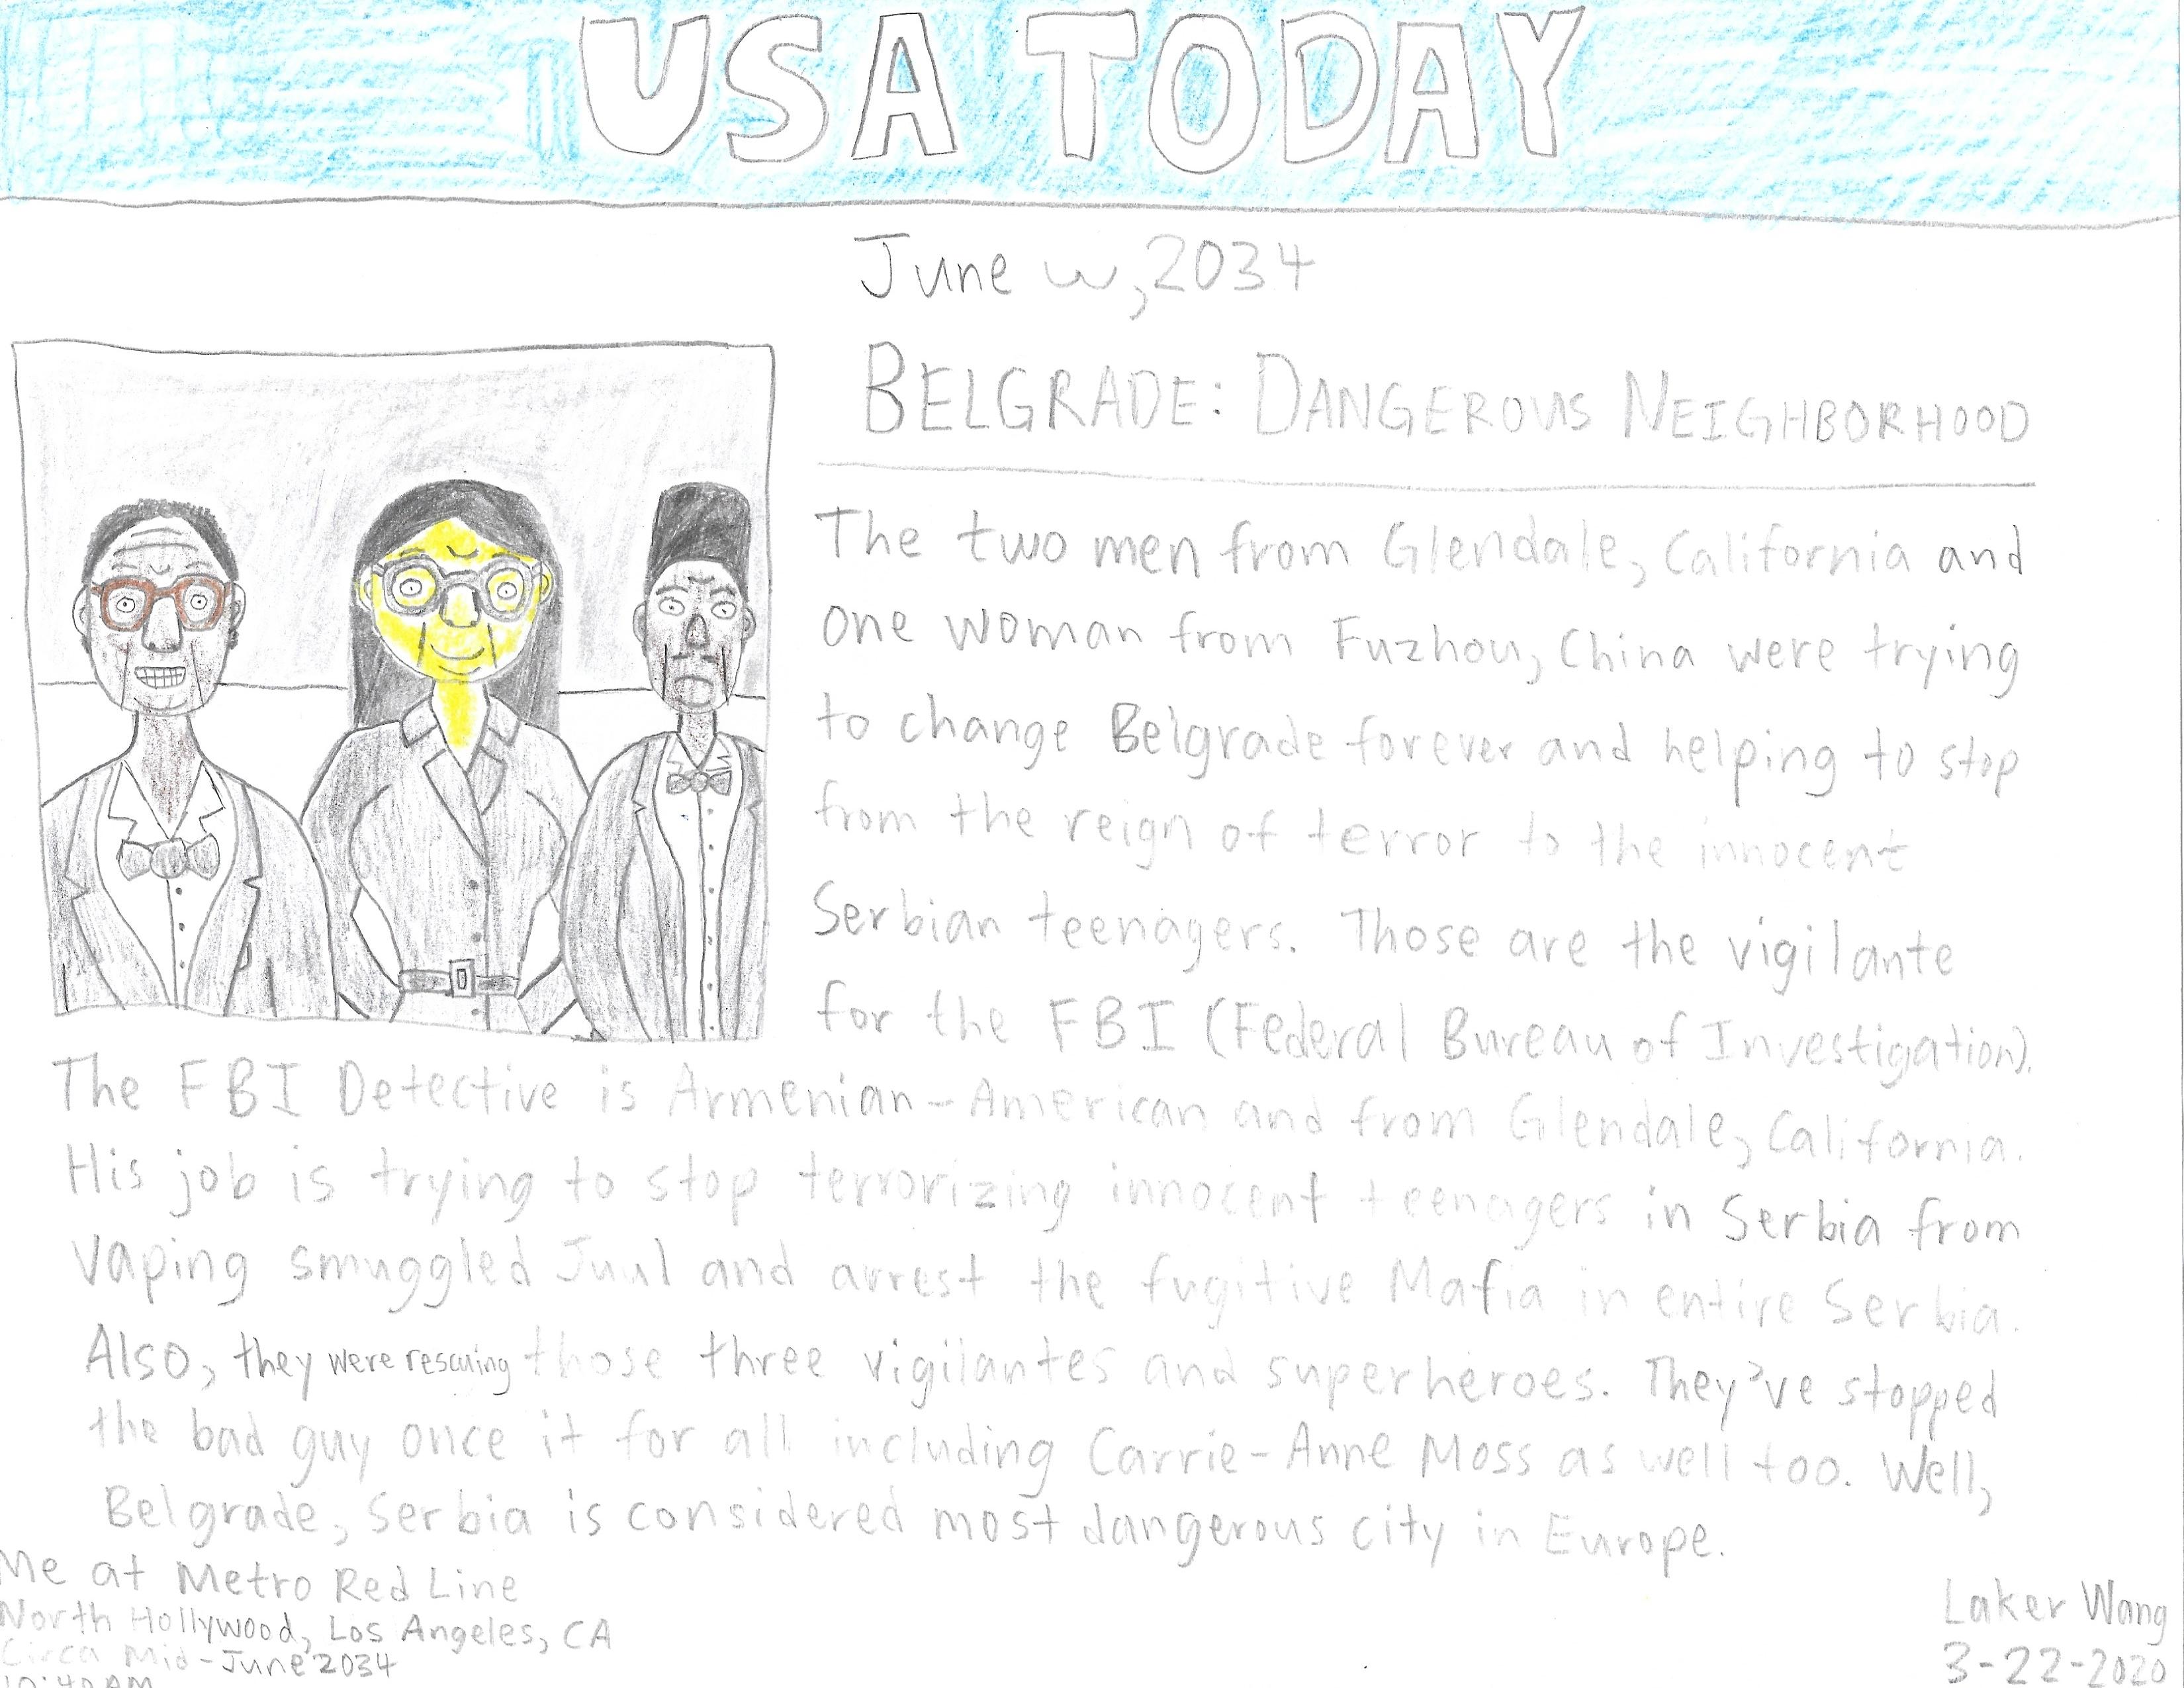 USA TODAY
June w, 2034
BELGRADE: DANGEROUS NEIGHBORHOOD
The two men from Glendale, California and
one woman from Fuzhou, China were trying
to change Belgrade forever and helping to stop
from the reign of terror to the innocent
Serbian teenagers. Those are the vigilante
for the FBI (Federal Bureau of Investigation).
The FBI Detective is Armenian-American and from Glendale, California.
His job is trying to stop terrorizing innocent teenagers in Serbia from
vaping smuggled Juul and arrest the fugitive Mafia in entire Serbia.
Also, they were rescuing those three vigilantes and superheroes. They've stopped
the bad guy once it for all including Carrie-Anne Moss as well too. Well,
Belgrade, Serbia is considered most dangerous city in Europe.
Me at Metro Red Line
North Hollywood, Los Angeles, CA
Circa Mid-June 2034
10:40 AM
Laker Wang
3-22-2020